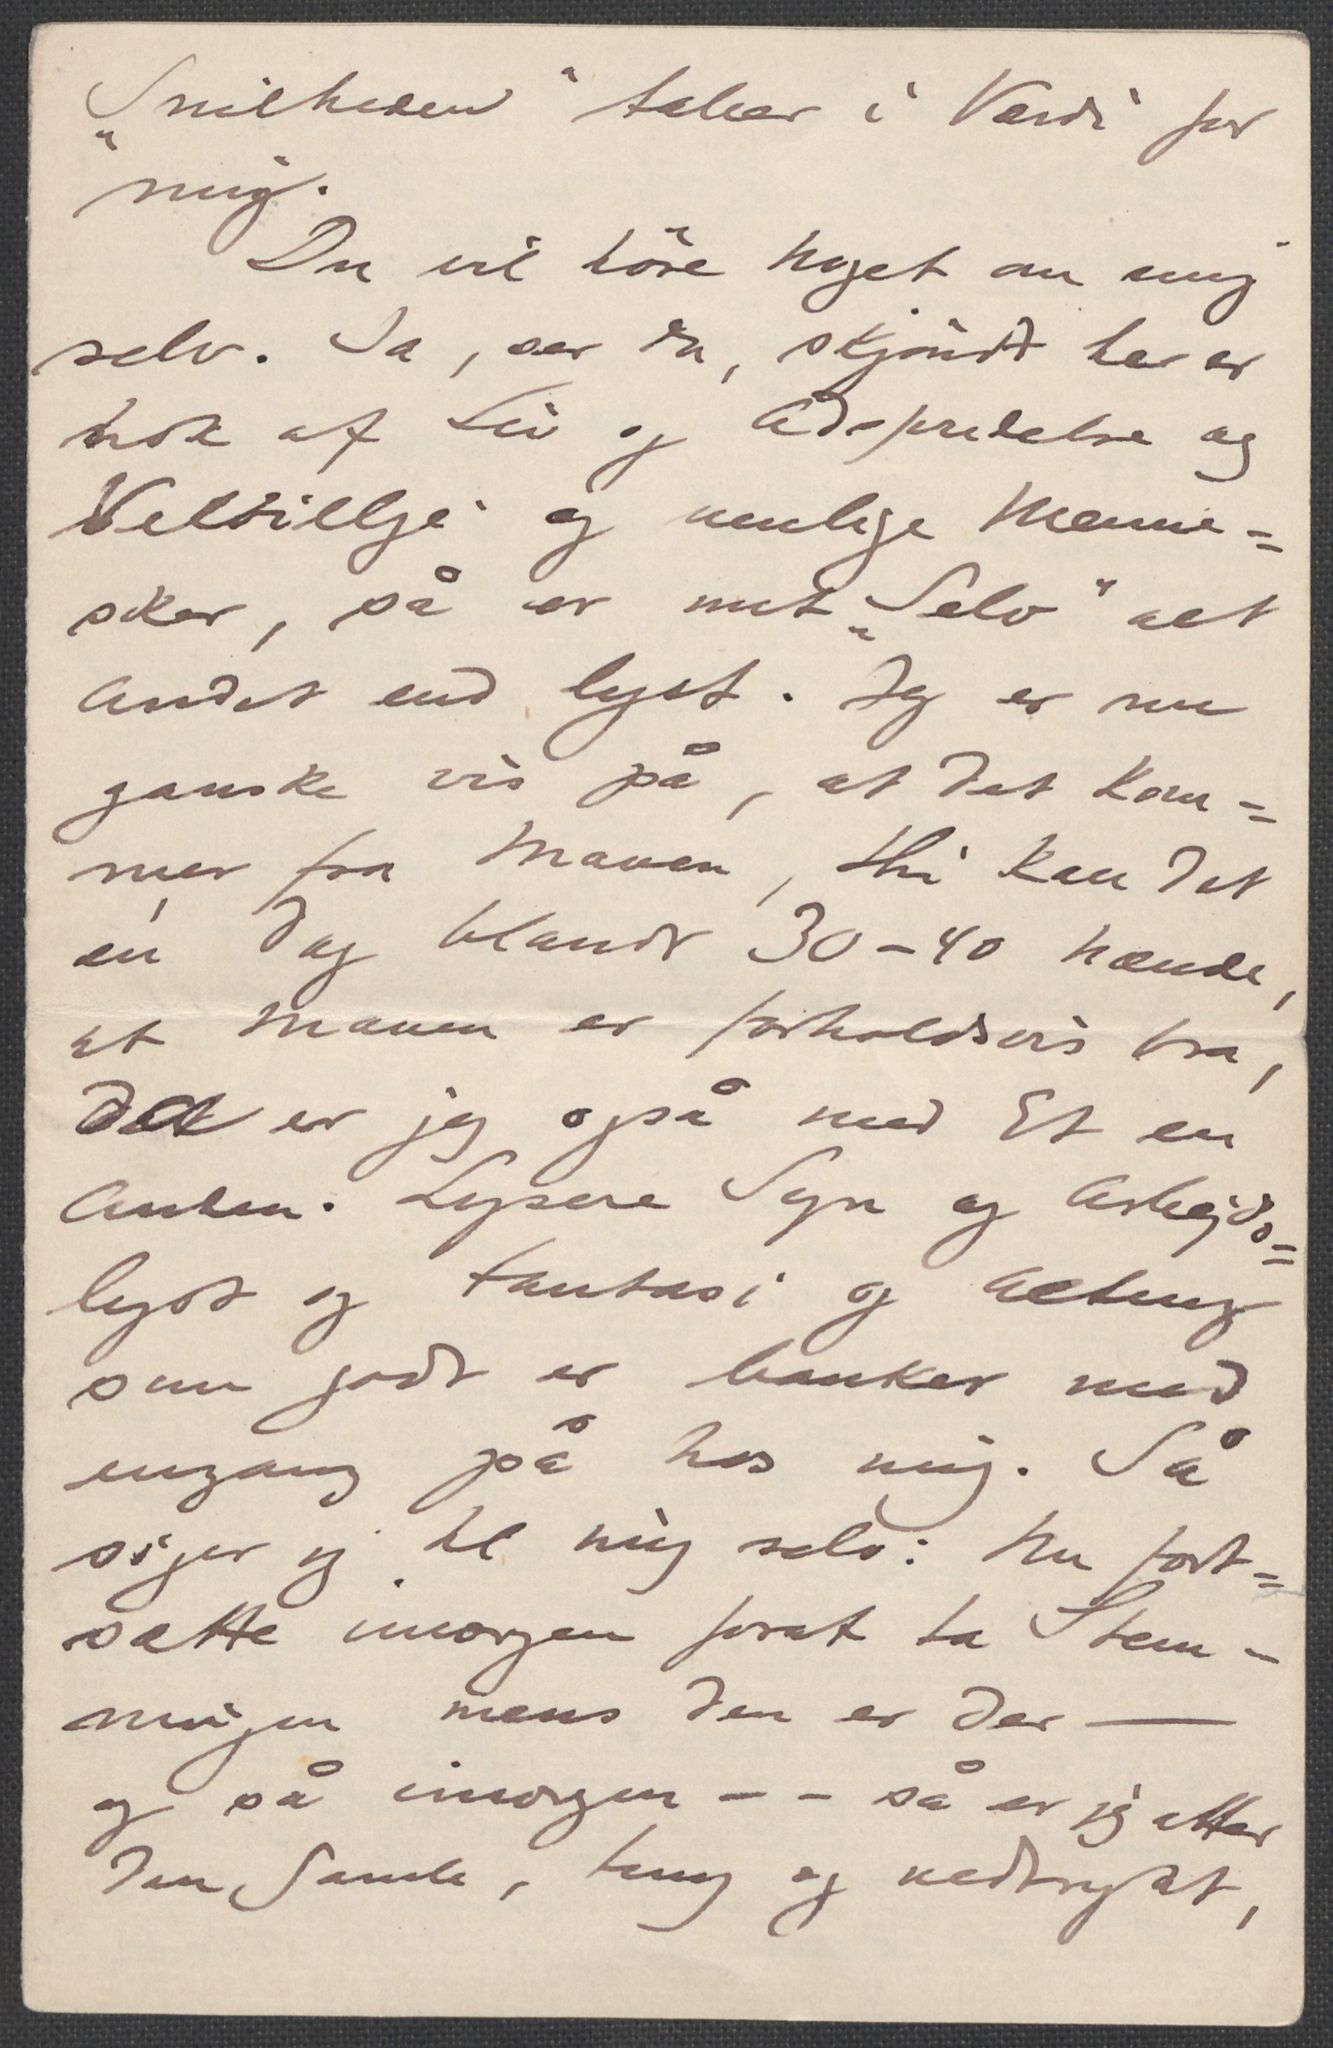 „Snilheden" taber i Værdi for
mig.
Du vil höre noget om mig
selv. Ja, ser du, skjöndt her er
nok af Liv og Adspredelse og
Velvillje og venlige Menne=
sker, så er mit „Selv" alt
andet end lyst. Jeg er nu
ganske vis på, at det kom=
mer fra Maven, thi kan det
én Dag blandt 30-40 hænde,
at Maven er forholdsvis bra,
da er jeg også med Et en
Anden. Lysere Syn og Arbejds=
lyst og Fantasi og Alting
som godt er banker med
engang på hos mig. Så
siger jeg til mig selv: Nu fort=
sætte imorgen forat ta Stem-
ningen mens den er der —
og så imorgen - - så er jeg atter
den Gamle, tung og nedtrykt,